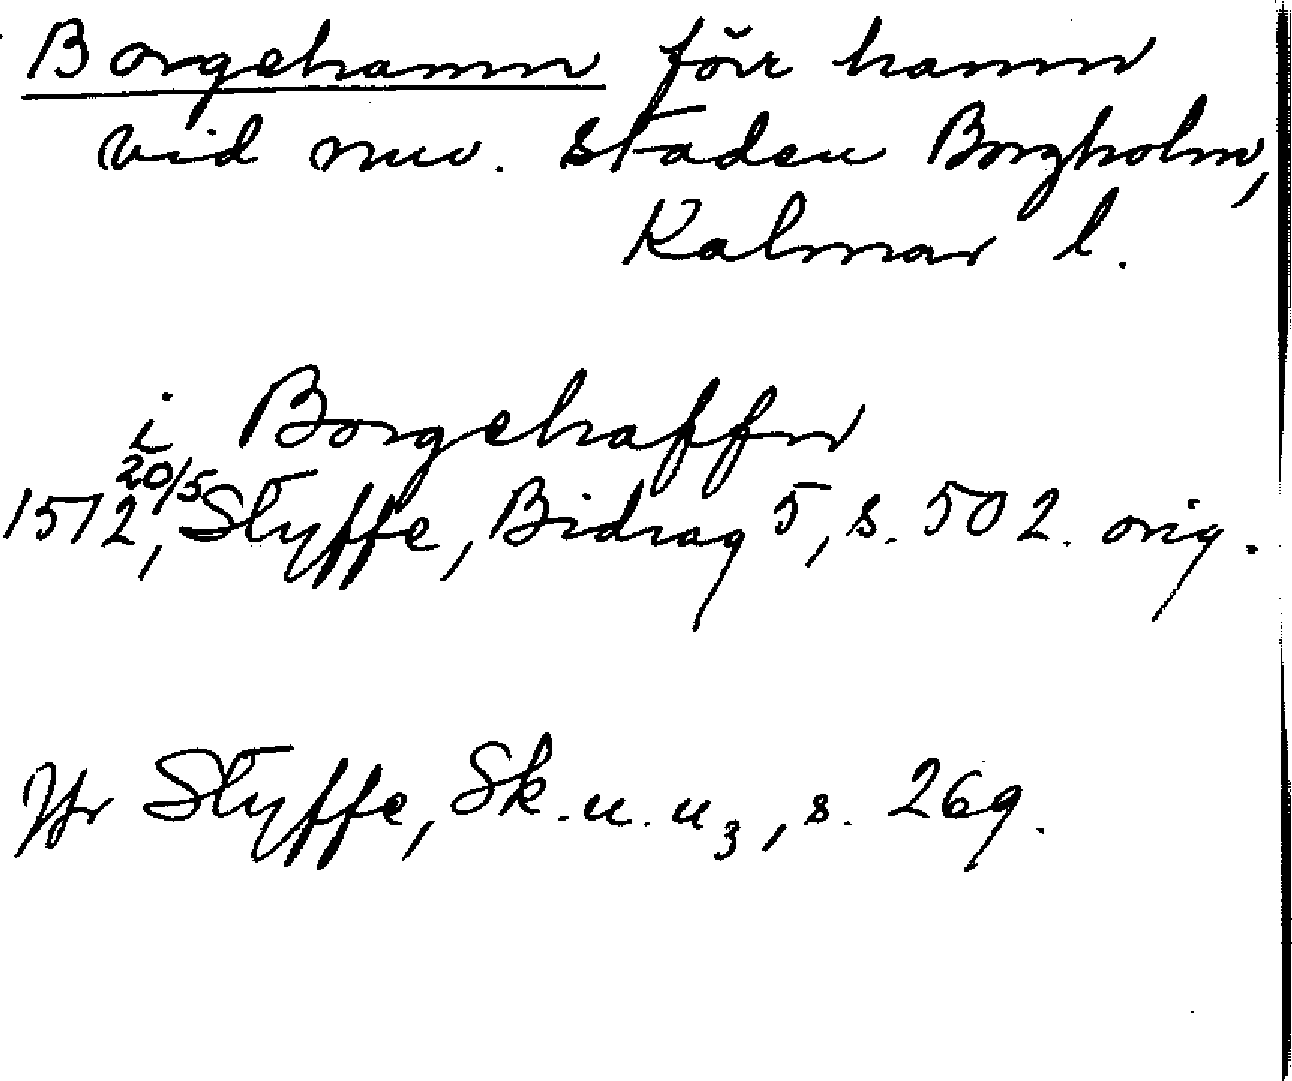 Borgehamn förr hamn
vid nuv. staden Borgholm,
Kalmar l.
i Borgehaffn
1512 20/5, Styffe, Bidrag 5, s. 502. orig.
Jfr Styffe, Sk. u. u 3, s. 269.